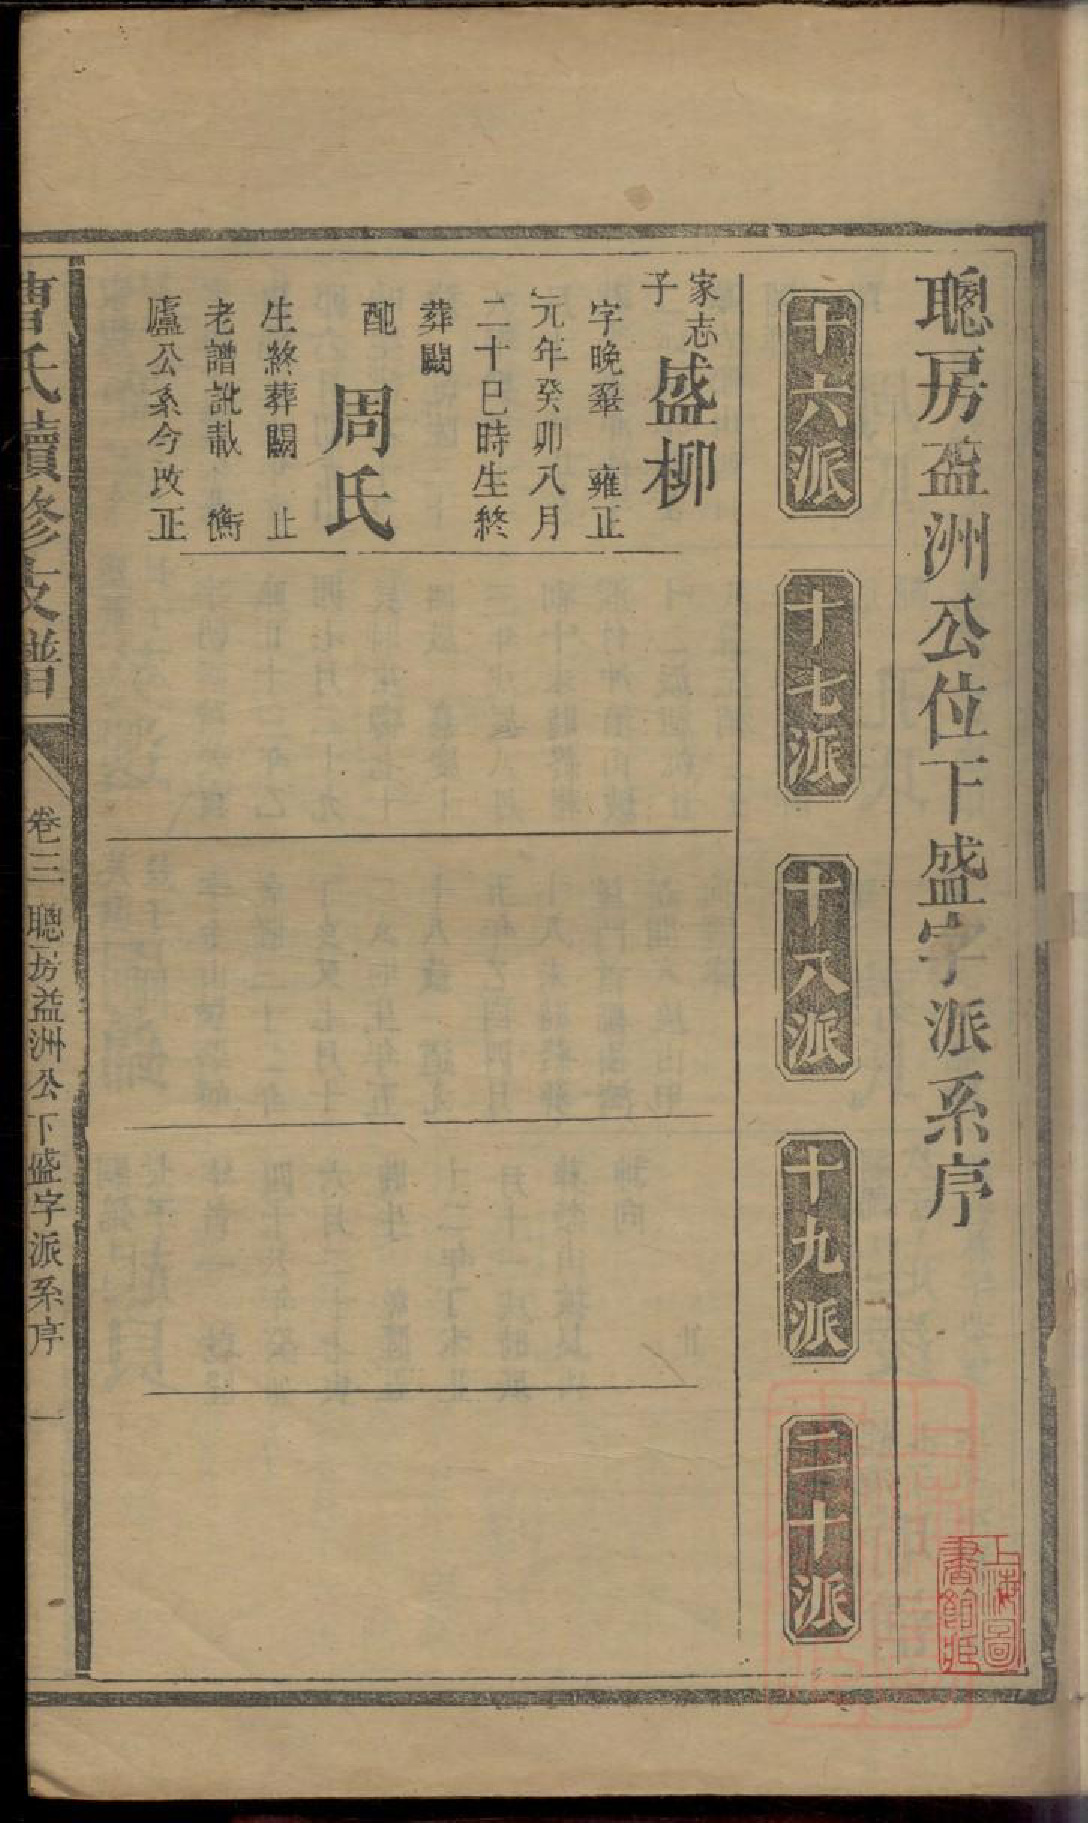 聰房益洲公位下盛字派系序
十六派
十七派
十八派
十九派
二十派
家志
子
盛柳
字晚翠 雍正
元年癸卯八月
二十巳時生終
葬闕
配
周氏
生終葬闕 止
老譜訛載 衡
廬公系今改正
曹氏續修支譜
卷三 聰房益洲公下盛字派系序
一
上海圖
書館藏